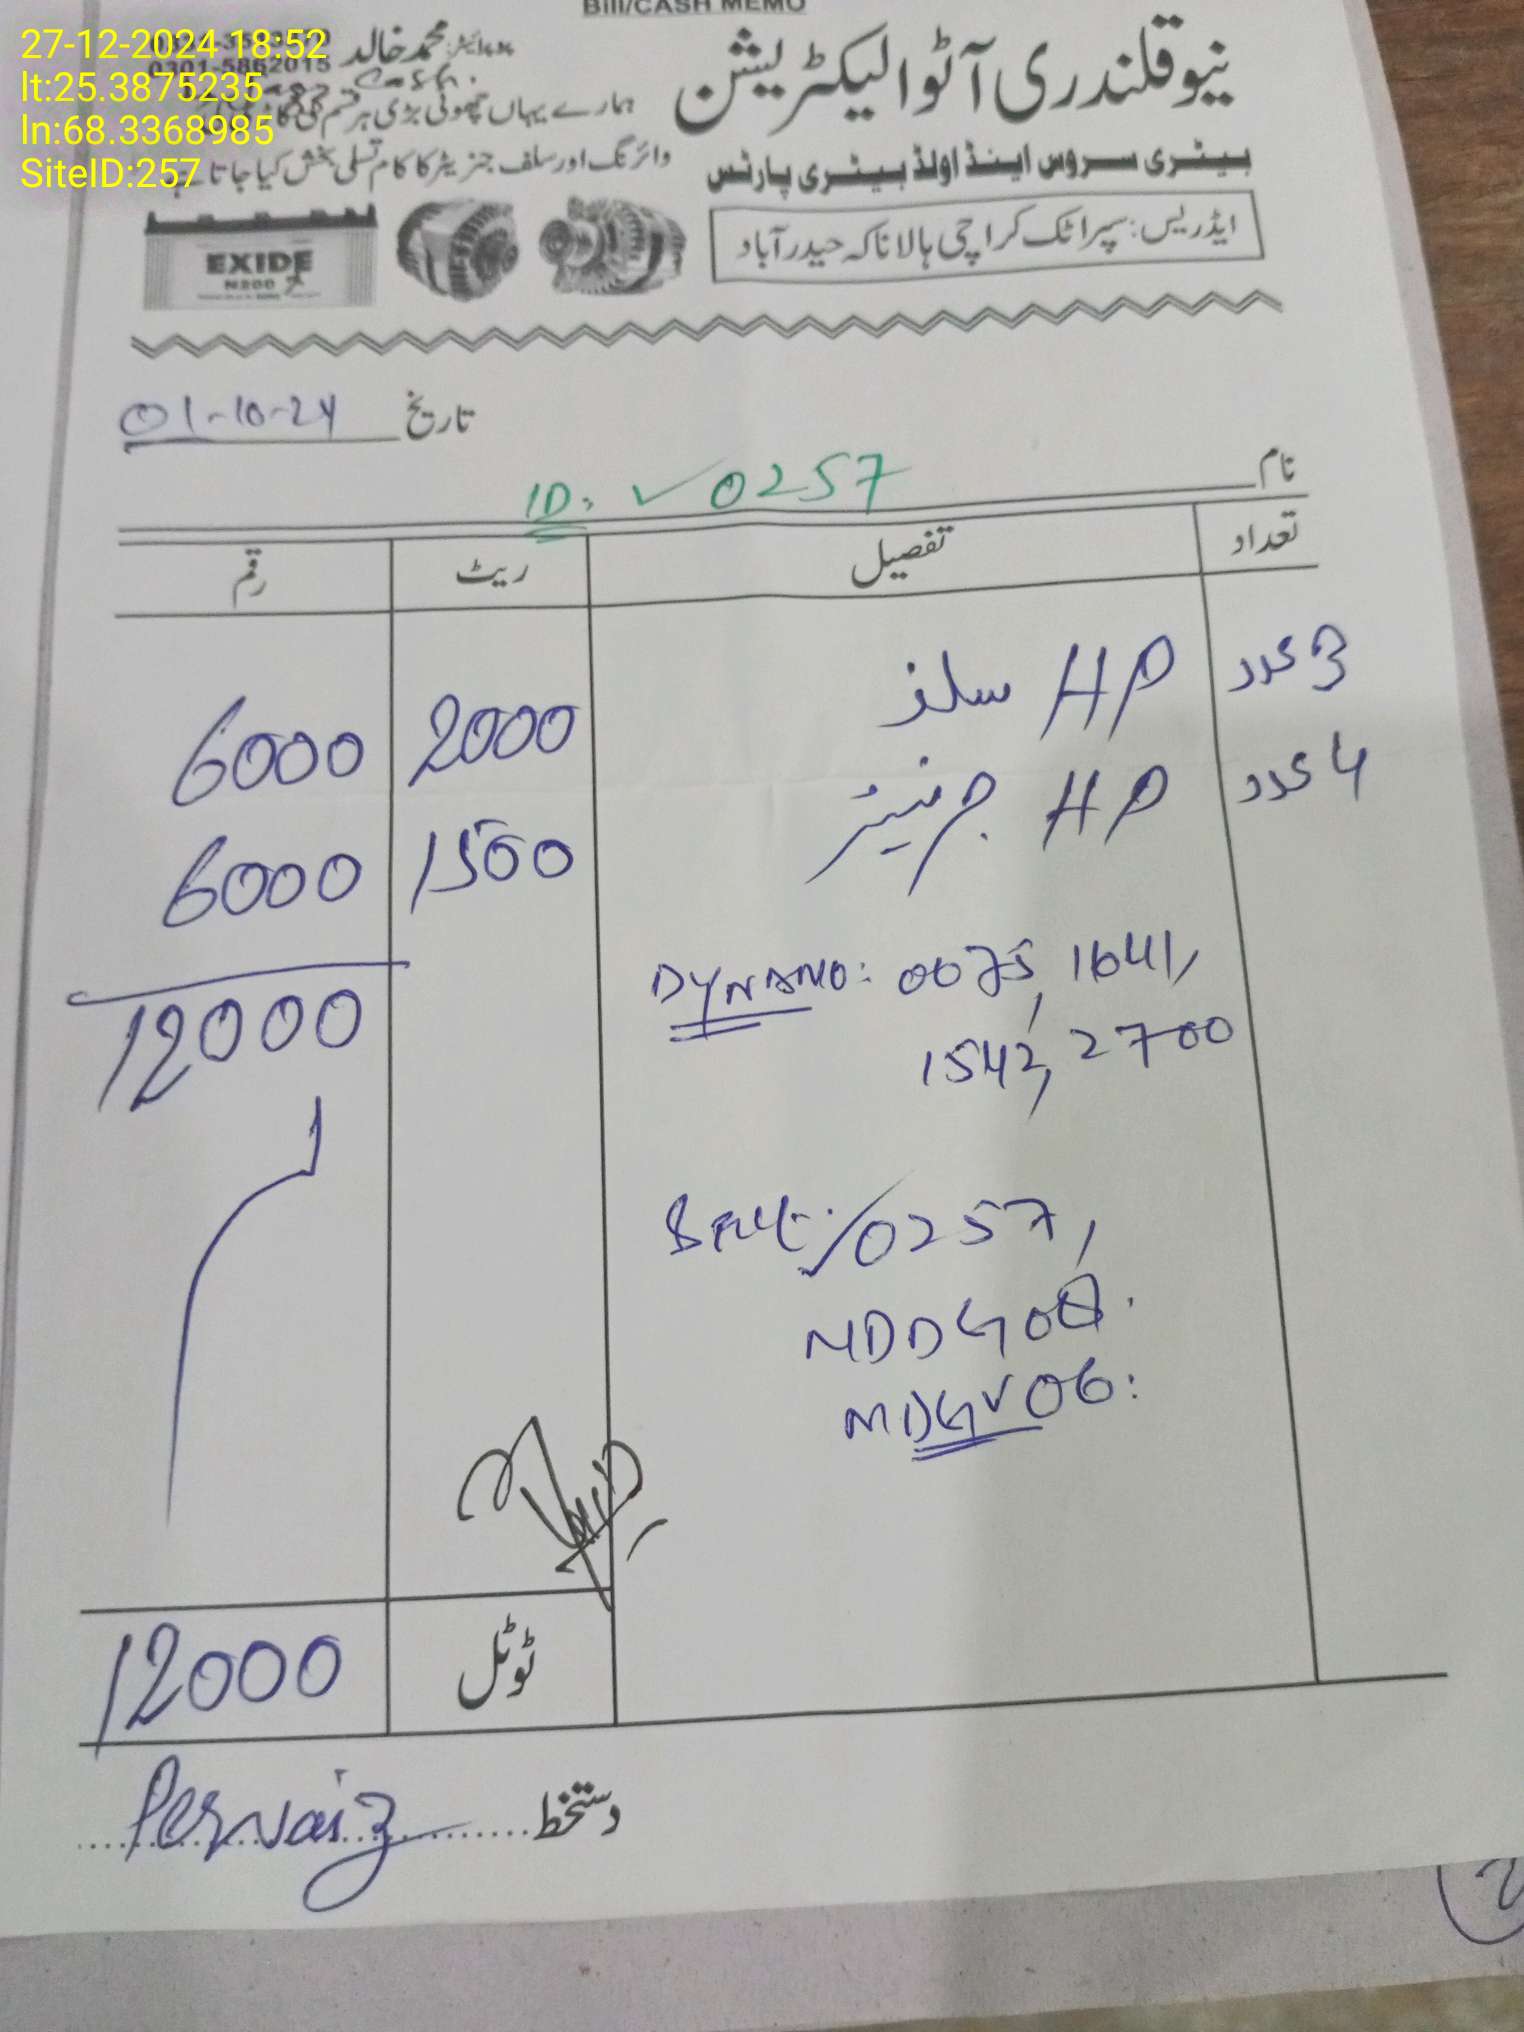 Bill/CASH MEMO
27-12-2024 18:52
lt:25.3875235
ln:68.3368985
SiteID:257
نیو قلندری آٹو الیکٹریشن
محمد خالد
0301-5862015
ہمارے یہاں چھوٹی بڑی ہر قسم کی
وائرنگ اور سلف جنریٹر کا کام تسلی بخش کیا جاتا ہے
بیٹری سروس اینڈ اولڈ بیٹری پارٹس
ایڈریس: سپر اٹک کراچی ہالا ناکہ حیدرآباد
EXIDE
N200
تاریخ 01-10-24
نام
ID: V 0257
تعداد تفصیل ریٹ رقم
3 عدد HP سلف 2000 6000
4 عدد HP جرنیٹر 1500 6000
12000
DYNAMO: 0075, 1641,
1542, 2700
0257,
MDGV06:
ٹوٹل 12000
دستخط Pervaiz